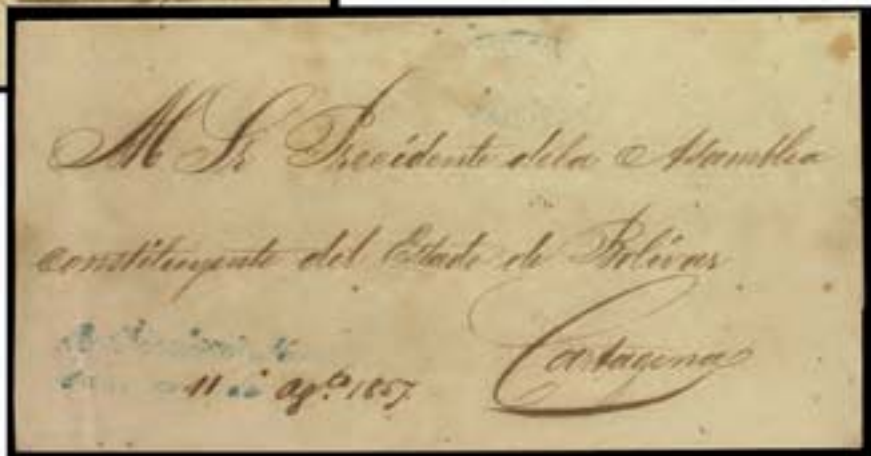 Al Sr Presidente dela Asamblea
constituyente del Estado de Bolívar
Cartagena
11 Agto 1857